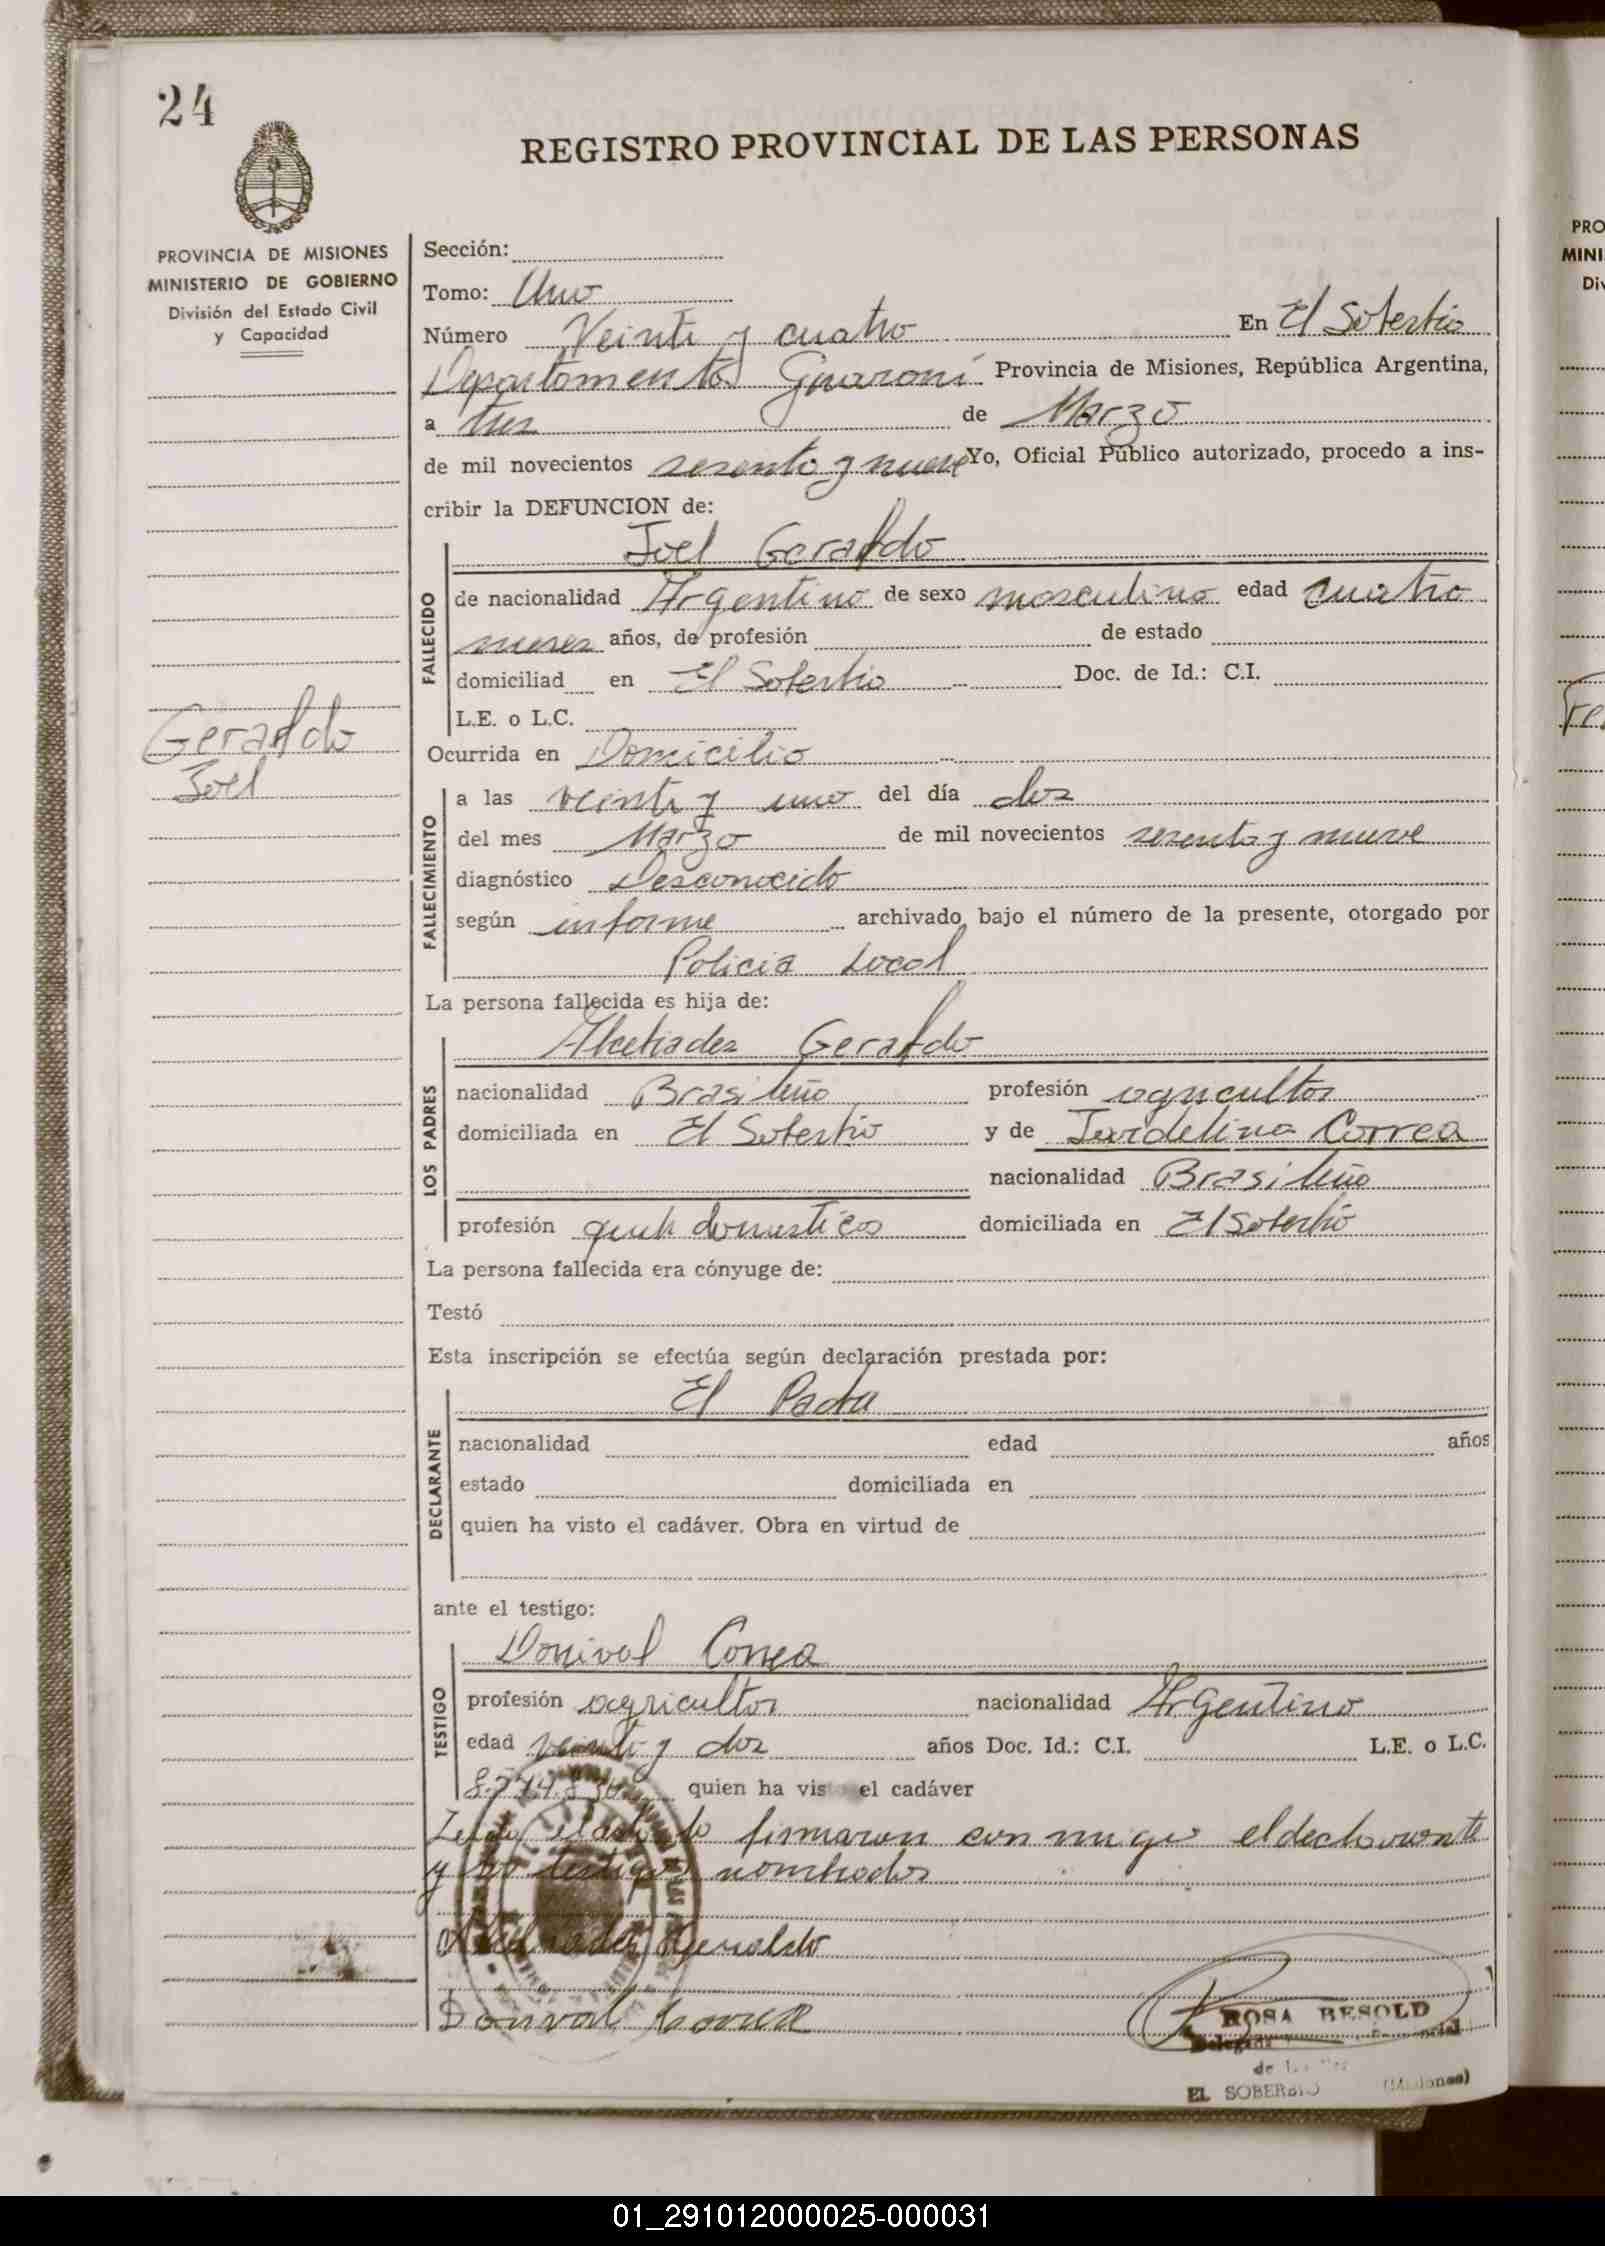 24
REGISTRO PROVINCIAL DE LAS PERSONAS
PROVINCIA DE MISIONES
MINISTERIO DE GOBIERNO
División del Estado Civil
y Capacidad
Geraldo
Joel
Sección:
Tomo: Uno
Número Veinti y cuatro En El Soberbio
Departamento Guaraní Provincia de Misiones, República Argentina,
a tres de Marzo
de mil novecientos sesenta y nueve Yo, Oficial Público autorizado, procedo a ins-
cribir la DEFUNCION de:
Joel Geraldo
FALLECIDO
de nacionalidad Argentino de sexo masculino edad cuatro
meses años, de profesión de estado
domiciliad en El Soberbio Doc. de Id.: C.I.
L.E. o L.C.
Ocurrida en Domicilio
FALLECIMIENTO
a las veinti y uno del día dos
del mes Marzo de mil novecientos sesenta y nueve
diagnóstico Desconocido
según informe archivado bajo el número de la presente, otorgado por
Policia Local
La persona fallecida es hija de:
LOS PADRES
Alcebiades Geraldo
nacionalidad Brasileño profesión agricultor
domiciliada en El Soberbio y de Jardelina Correa
nacionalidad Brasileño
profesión domesticos domiciliada en El Soberbio
La persona fallecida era cónyuge de:
Testó
Esta inscripción se efectúa según declaración prestada por:
DECLARANTE
El Padre
nacionalidad edad años
estado domiciliada en
quien ha visto el cadáver. Obra en virtud de
ante el testigo:
TESTIGO
Donival Correa
profesión agricultor nacionalidad Argentino
edad veinti y dos años Doc. Id.: C.I. L.E. o L.C.
quien ha visto el cadáver
Leida el acta firmaron con migo el declarante
y testigos nombrados
Geraldo
Donival Correa
ROSA BESOLD
Delegada
EL SOBERBIO (Misiones)
PRO
MINI
Div
Fe
01_291012000025-000031